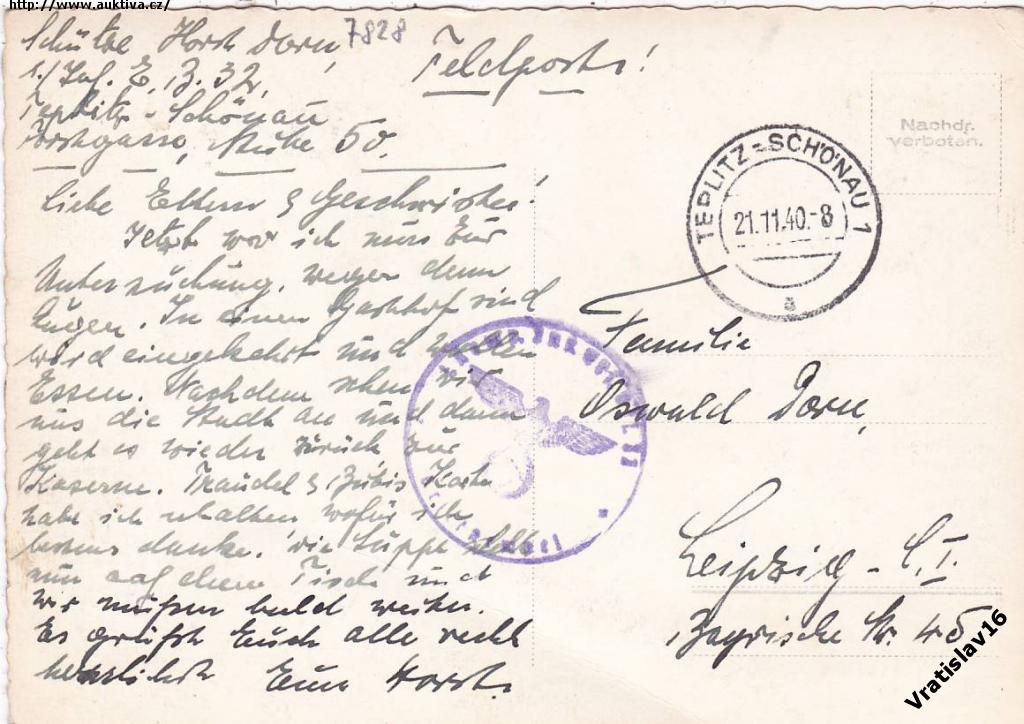 http://www.auktiva.cz/
Schütze Horst Dorn, 7828
1./Inf. E. B. 32,
Teplitz - Schönau
Feldpost!
Stube 50.
Nachdr.
verboten.
TEPLITZ-SCHÖNAU 1
21.11.40.-8
a
Liebe Eltern & Geschwister!
Jetzt war ich nun zur
Untersuchung, wegen den
Augen. In einen Gasthof sind
wird eingekehrt und wollen
Essen. Nachdem sehen wir
uns die Stadt an und dann
geht es wieder zurück, zur
Kaserne. Traudel & Karte
habe ich erhalten wofür ich
bestens danke. Die Suppe steht
nun auf dem Tisch und
wir müßen bald weiter.
Es grüßt Euch alle recht
herzlichst Euer Horst.
Familie
Oswald Dorn,
Leipzig - C. I.
Bayrische Str. 45
Vratislav16